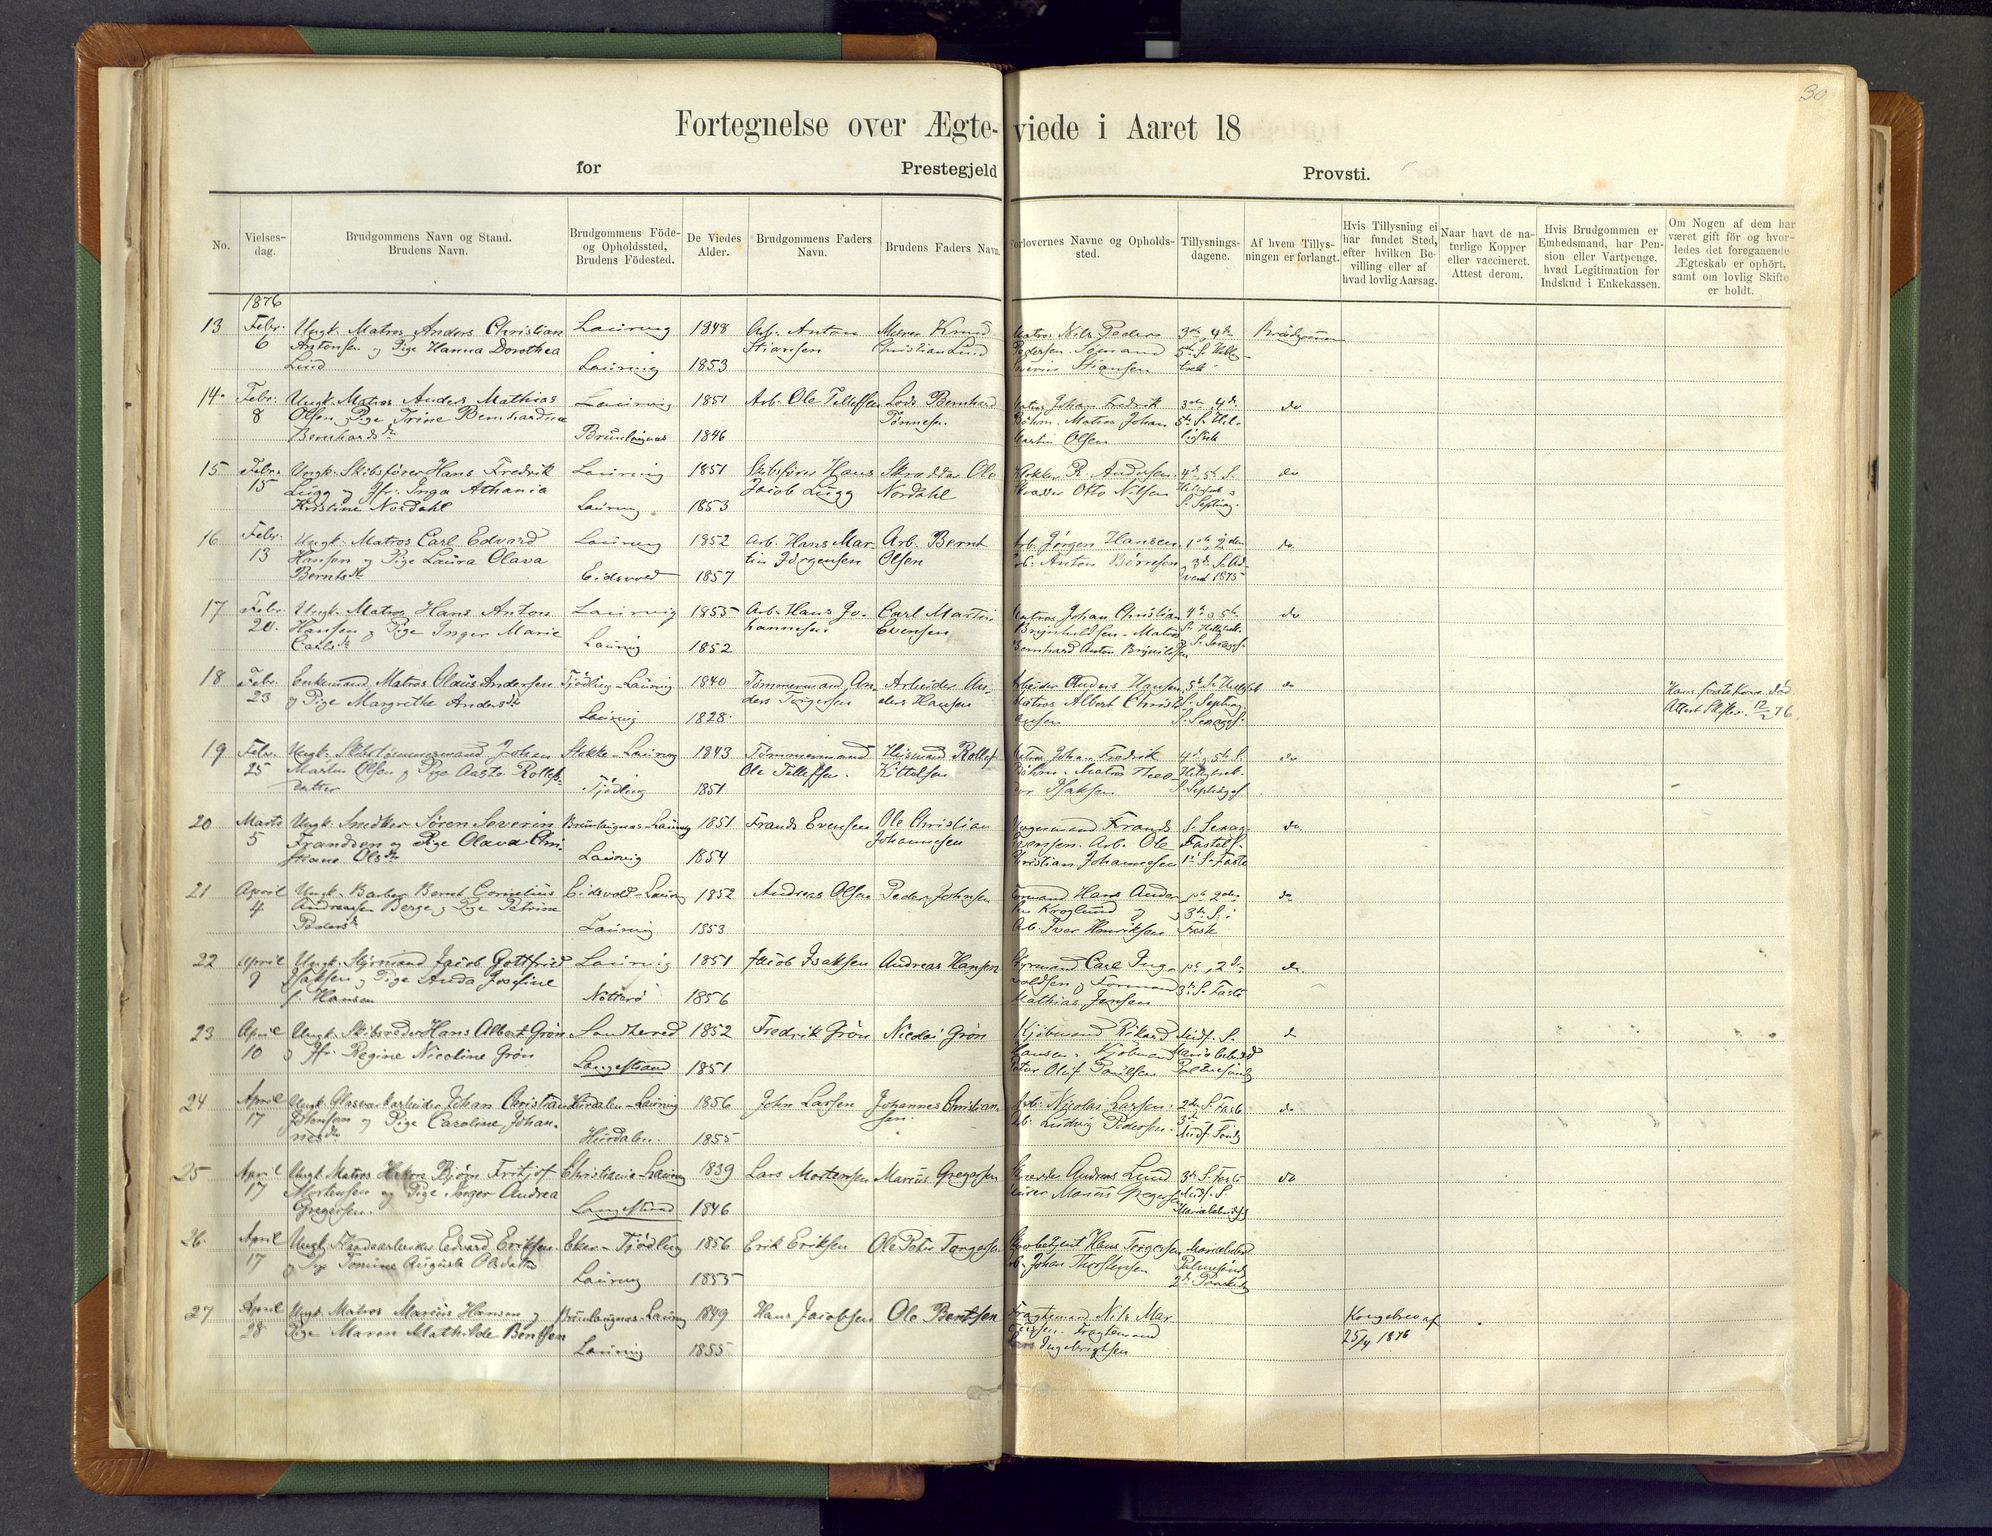 30
Fortegnelse over Ægteviede i Aaret 18
for Prestegjeld Provsti.
No.
Vielsesdag.
Brudgommens Navn og Stand.
Brudens Navn.
Brudgommens Föde- og Opholdssted, Brudens Födested.
De Viedes Alder.
Brudgommens Faders Navn.
Brudens Faders Navn.
Forlovernes Navne og Opholdssted.
Tillysningsdagene.
Af hvem Tillysningen er forlangt.
Hvis Tillysning ei har fundet Sted, efter hvilken Bevilling eller af hvad lovlig Aarsag.
Naar havt de naturlige Kopper eller vaccineret. Attest derom.
Hvis Brudgommen er Embedsmand, har Pension eller Vartpenge, hvad Legitimation for Indskud i Enkekassen.
Om Nogen af dem har været gift för og hvorledes det foregaaende Ægteskab er ophört, samt om lovlig Skifte er holdt.
1876
13 Febr. Ungk. Matros Anders Christian Laurvig 1848 Arb. Anton Murer Knud Matros Nils Peder 3de, 4de Brudgommen
6 Antonsen og Pige Hanna Dorothea Stiansen Christian Lund Pedersen Sömand 5te S.
Lund Laurvig 1853 Severin Stiansen
14 Febr. Ungk. Matros Anders Mathias Laurvig 1851 Arb. Ole Tellefsen Lods Bernhard Matros Johan Fredrik 3de, 4de do
8 Olsen og Pige Trine Bernhardine Tönnesen Böhm. Matros Johan 5te S.
Bernhardsdr Brunlagnæs 1846 Martin Olsen
15 Febr. Ungk. Skibsförer Hans Fredrik Laurvig 1851 Skibsförer Hans Skrædder Ole Klokker R. Andersen 4de, 5te S. do
15 Lugg og Jfr. Inga Athania Jacob Lugg Nordahl Skrædder Otto Nilsen
Kristine Nordahl Laurvig 1853 S. Septuag.
16 Febr. Ungk. Matros Carl Edvard Laurvig 1852 Arb. Hans Mar- Arb. Bernt Arb. Jørgen Hansen 1ste, 2den do
13 Hansen og Pige Laura Olava tin Jørgensen Olsen Arb. Anton Börresen og 3de S. Ad-
Berntsdr Eidsvold 1857 vent 1875
17 Febr. Ungk. Matros Hans Anton Laurvig 1855 Arb. Hans Jo- Carl Martin Matros Johan Christian 4de og 5te do
20. Hansen og Pige Inger Marie hannesen Evensen Brynhildsen. Matros
Carlsdr Laurvig 1852 Bernhard Anton
18 Febr. Enkemand Matros Olaus Andersen Tjödling-Laurvig 1840 Tömmermand An- Arbeider An- Arbeider Anders Hansen 5te S. do Hans förste Kone död
23 og Pige Margrethe Andersdr ders Torgersen ders Hansen Matros Albert Christi- S. Septuag. Attest Skifter. 12/2 76.
Laurvig 1828. ansen
19 Febr. Ungk. Skibstömmermand Johan Stokke-Laurvig 1843 Tömmermand Husmand Rollef Matros Johan Fredrik 4de, 5te S. do
25 Martin Olsen og Pige Aaste Rollefs- Ole Tellefsen. Kittelsen Böhm. Matros Theo-
datter Tjödling 1851 dor Isaksen
20 Marts Ungk. Snedker Sören Severin Brunlagnæs-Laurvig 1851 Frands Evensen Ole Christian Frands do
5 Frandsen og Pige Olava Chri- Johannesen Evensen. Arb. Ole Fastel S.
stiane Olsdr Laurvig 1854 Christian Johannesen 1ste S. Faste
21 April Ungk. Barber Bernt Cornelius Eidsvold-Laurvig 1852 Andreas Olsen Peder Johnsen Formand Hans Ander- 1ste, 2den do
4 Andreassen Berg og Pige Petrine sen Kroglund og 3de S. i
Pedersdr Laurvig 1853 Arb. Iver Henriksen Faste
22 April Ungk. Styrmand Jacob Gottfried Laurvig 1851 Jacob Isaksen Andreas Hansen Styrmand Carl Inge- 1ste, 2den do
9 Isaksen og Pige Anda Josefine voldsen og Formand 3de S. Faste
f. Hansen Nötterö 1856 Mathias Jensen
23 April Ungk. Skibsreder Hans Albert Grön Sandherred 1852 Fredrik Grön Nicolai Grön Kjöbmand Rikard Midf. S. do
10 og Jfr. Regine Nicoline Grön Hansen. Kjöbmand
Langestrand 1851 Peter Oluf Paulsen Palmesöndag
24 April Ungk. Glasværkarbeider Johan Christian Hurdalen-Laurvig 1856 John Larsen Johannes Christian- Arb. Nicolas Larsen 2den S. Faste do
17 Johnsen og Pige Caroline Johan- sen Arb. Ludvig Pedersen 3de
nesdr Hurdalen 1855 Midf. Sönd.
25 April Ungk. Matros Björn Fritjof Christiania-Laurvig 1839 Lars Mortensen Marius Gregersen Andreas Lund 3de S. Faste do
17 Mortensen og Pige Inger Andrea Murer Marius Gregersen Midf. S.
Gregersen. Langestrand 1846
26 April Ungk. Edvard Eriksen Eker-Tjödling 1856 Erik Eriksen Ole Peter Torgersen Hans Torgersen
17 og Pige Tomine Augusta Olsdatter Arb. Johan Thorstensen Palmesönd.
Laurvig 1855
27 April Ungk. Matros Marius Hansen og Brunlagnæs-Laurvig 1849 Hans Jacobsen Ole Bentsen Fragtemand Nils Mar- Kongebrev af
28 Pige Maren Mathilde Bentsen tinsen. Fragtemand 25/4 1876
Laurvig 1855 Lars Ingebrigtsen